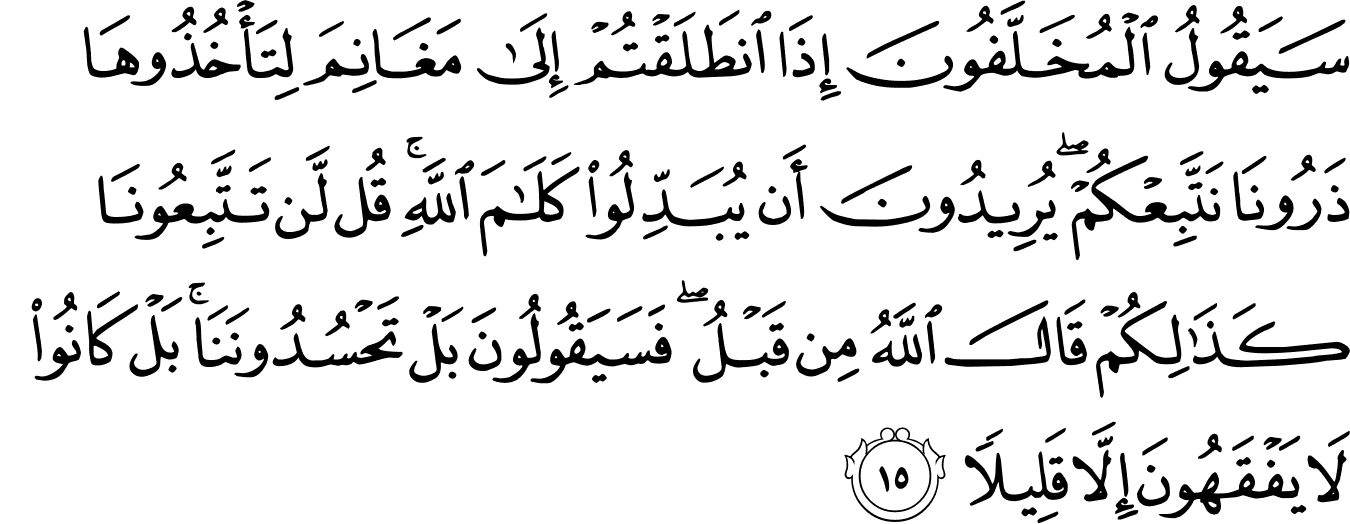 سَيَقُولُ ٱلْمُخَلَّفُونَ إِذَا ٱنطَلَقْتُمْ إِلَىٰ مَغَانِمَ لِتَأْخُذُوهَا
ذَرُونَا نَتَّبِعْكُمْ ۖ يُرِيدُونَ أَن يُبَدِّلُوا۟ كَلَـٰمَ ٱللَّهِ ۚ قُل لَّن تَتَّبِعُونَا
كَذَٰلِكُمْ قَالَ ٱللَّهُ مِن قَبْلُ ۖ فَسَيَقُولُونَ بَلْ تَحْسُدُونَنَا ۚ بَلْ كَانُوا۟
لَا يَفْقَهُونَ إِلَّا قَلِيلًا ١٥